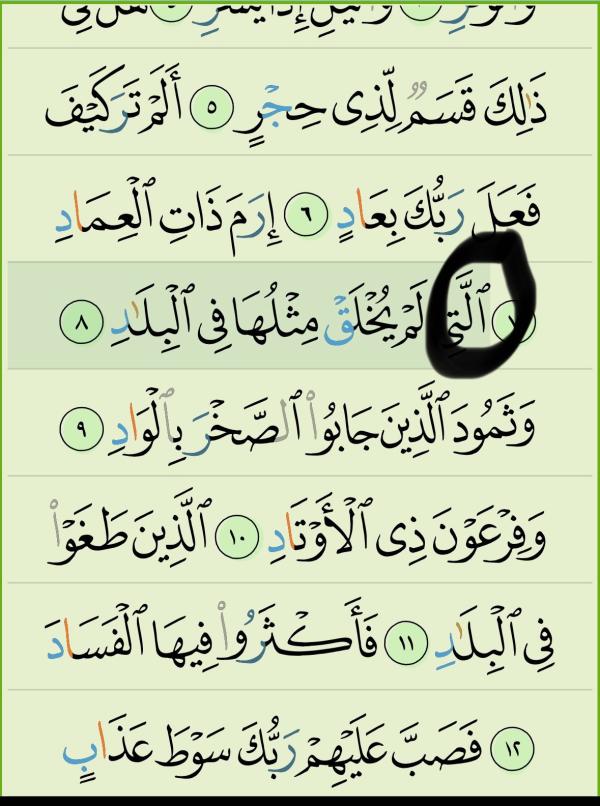 ذَٰلِكَ قَسَمٌ لِّذِى حِجْرٍ ٥ أَلَمْ تَرَ كَيْفَ
فَعَلَ رَبُّكَ بِعَادٍ ٦ إِرَمَ ذَاتِ ٱلْعِمَادِ
ٱلَّتِى لَمْ يُخْلَقْ مِثْلُهَا فِى ٱلْبِلَٰدِ ٨
وَثَمُودَ ٱلَّذِينَ جَابُوا۟ ٱلصَّخْرَ بِٱلْوَادِ ٩
وَفِرْعَوْنَ ذِى ٱلْأَوْتَادِ ١٠ ٱلَّذِينَ طَغَوْا۟
فِى ٱلْبِلَٰدِ ١١ فَأَكْثَرُوا۟ فِيهَا ٱلْفَسَادَ
١٢ فَصَبَّ عَلَيْهِمْ رَبُّكَ سَوْطَ عَذَابٍ